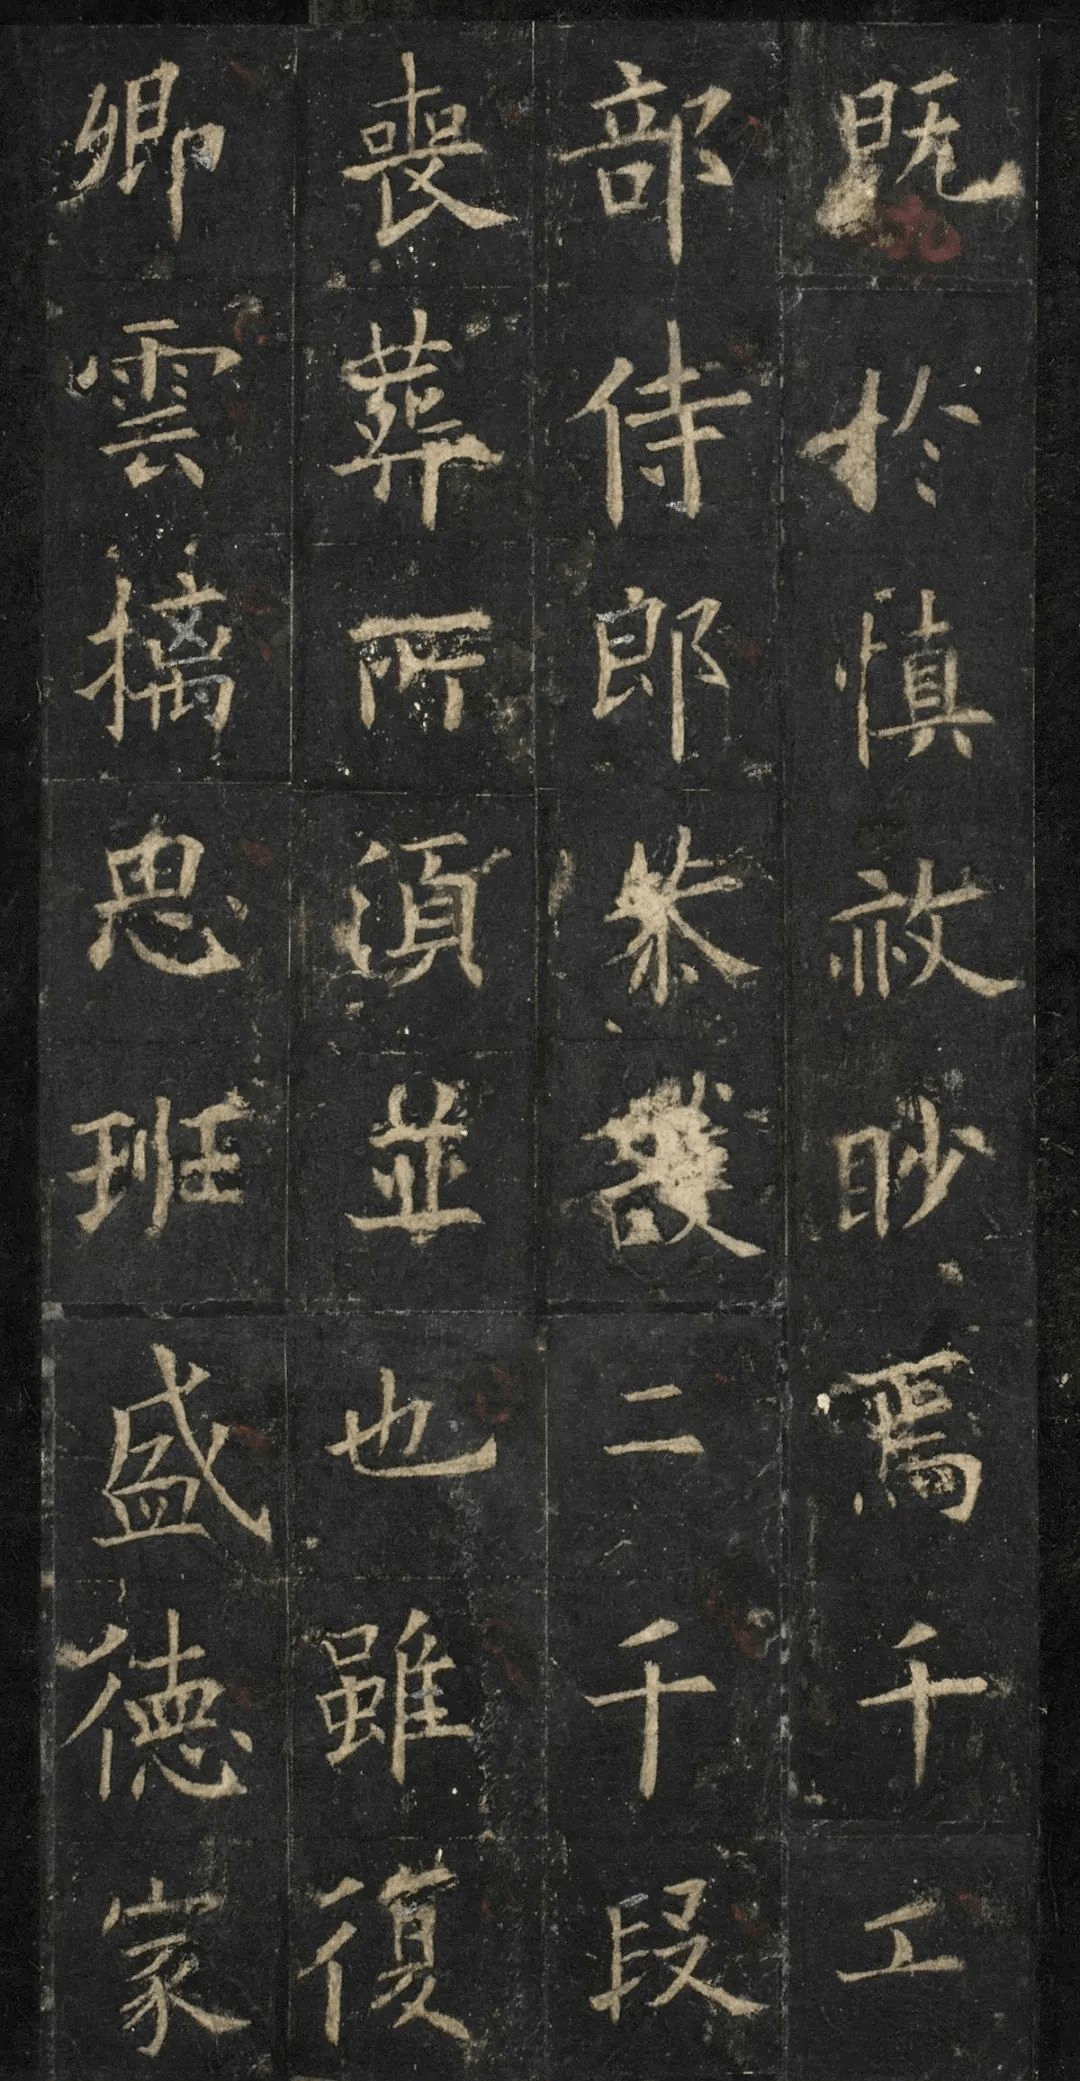 既於慎赦眇焉千工
部侍郎恭護二千段
喪葬所須並也雖復
卿雲摛思班盛德家